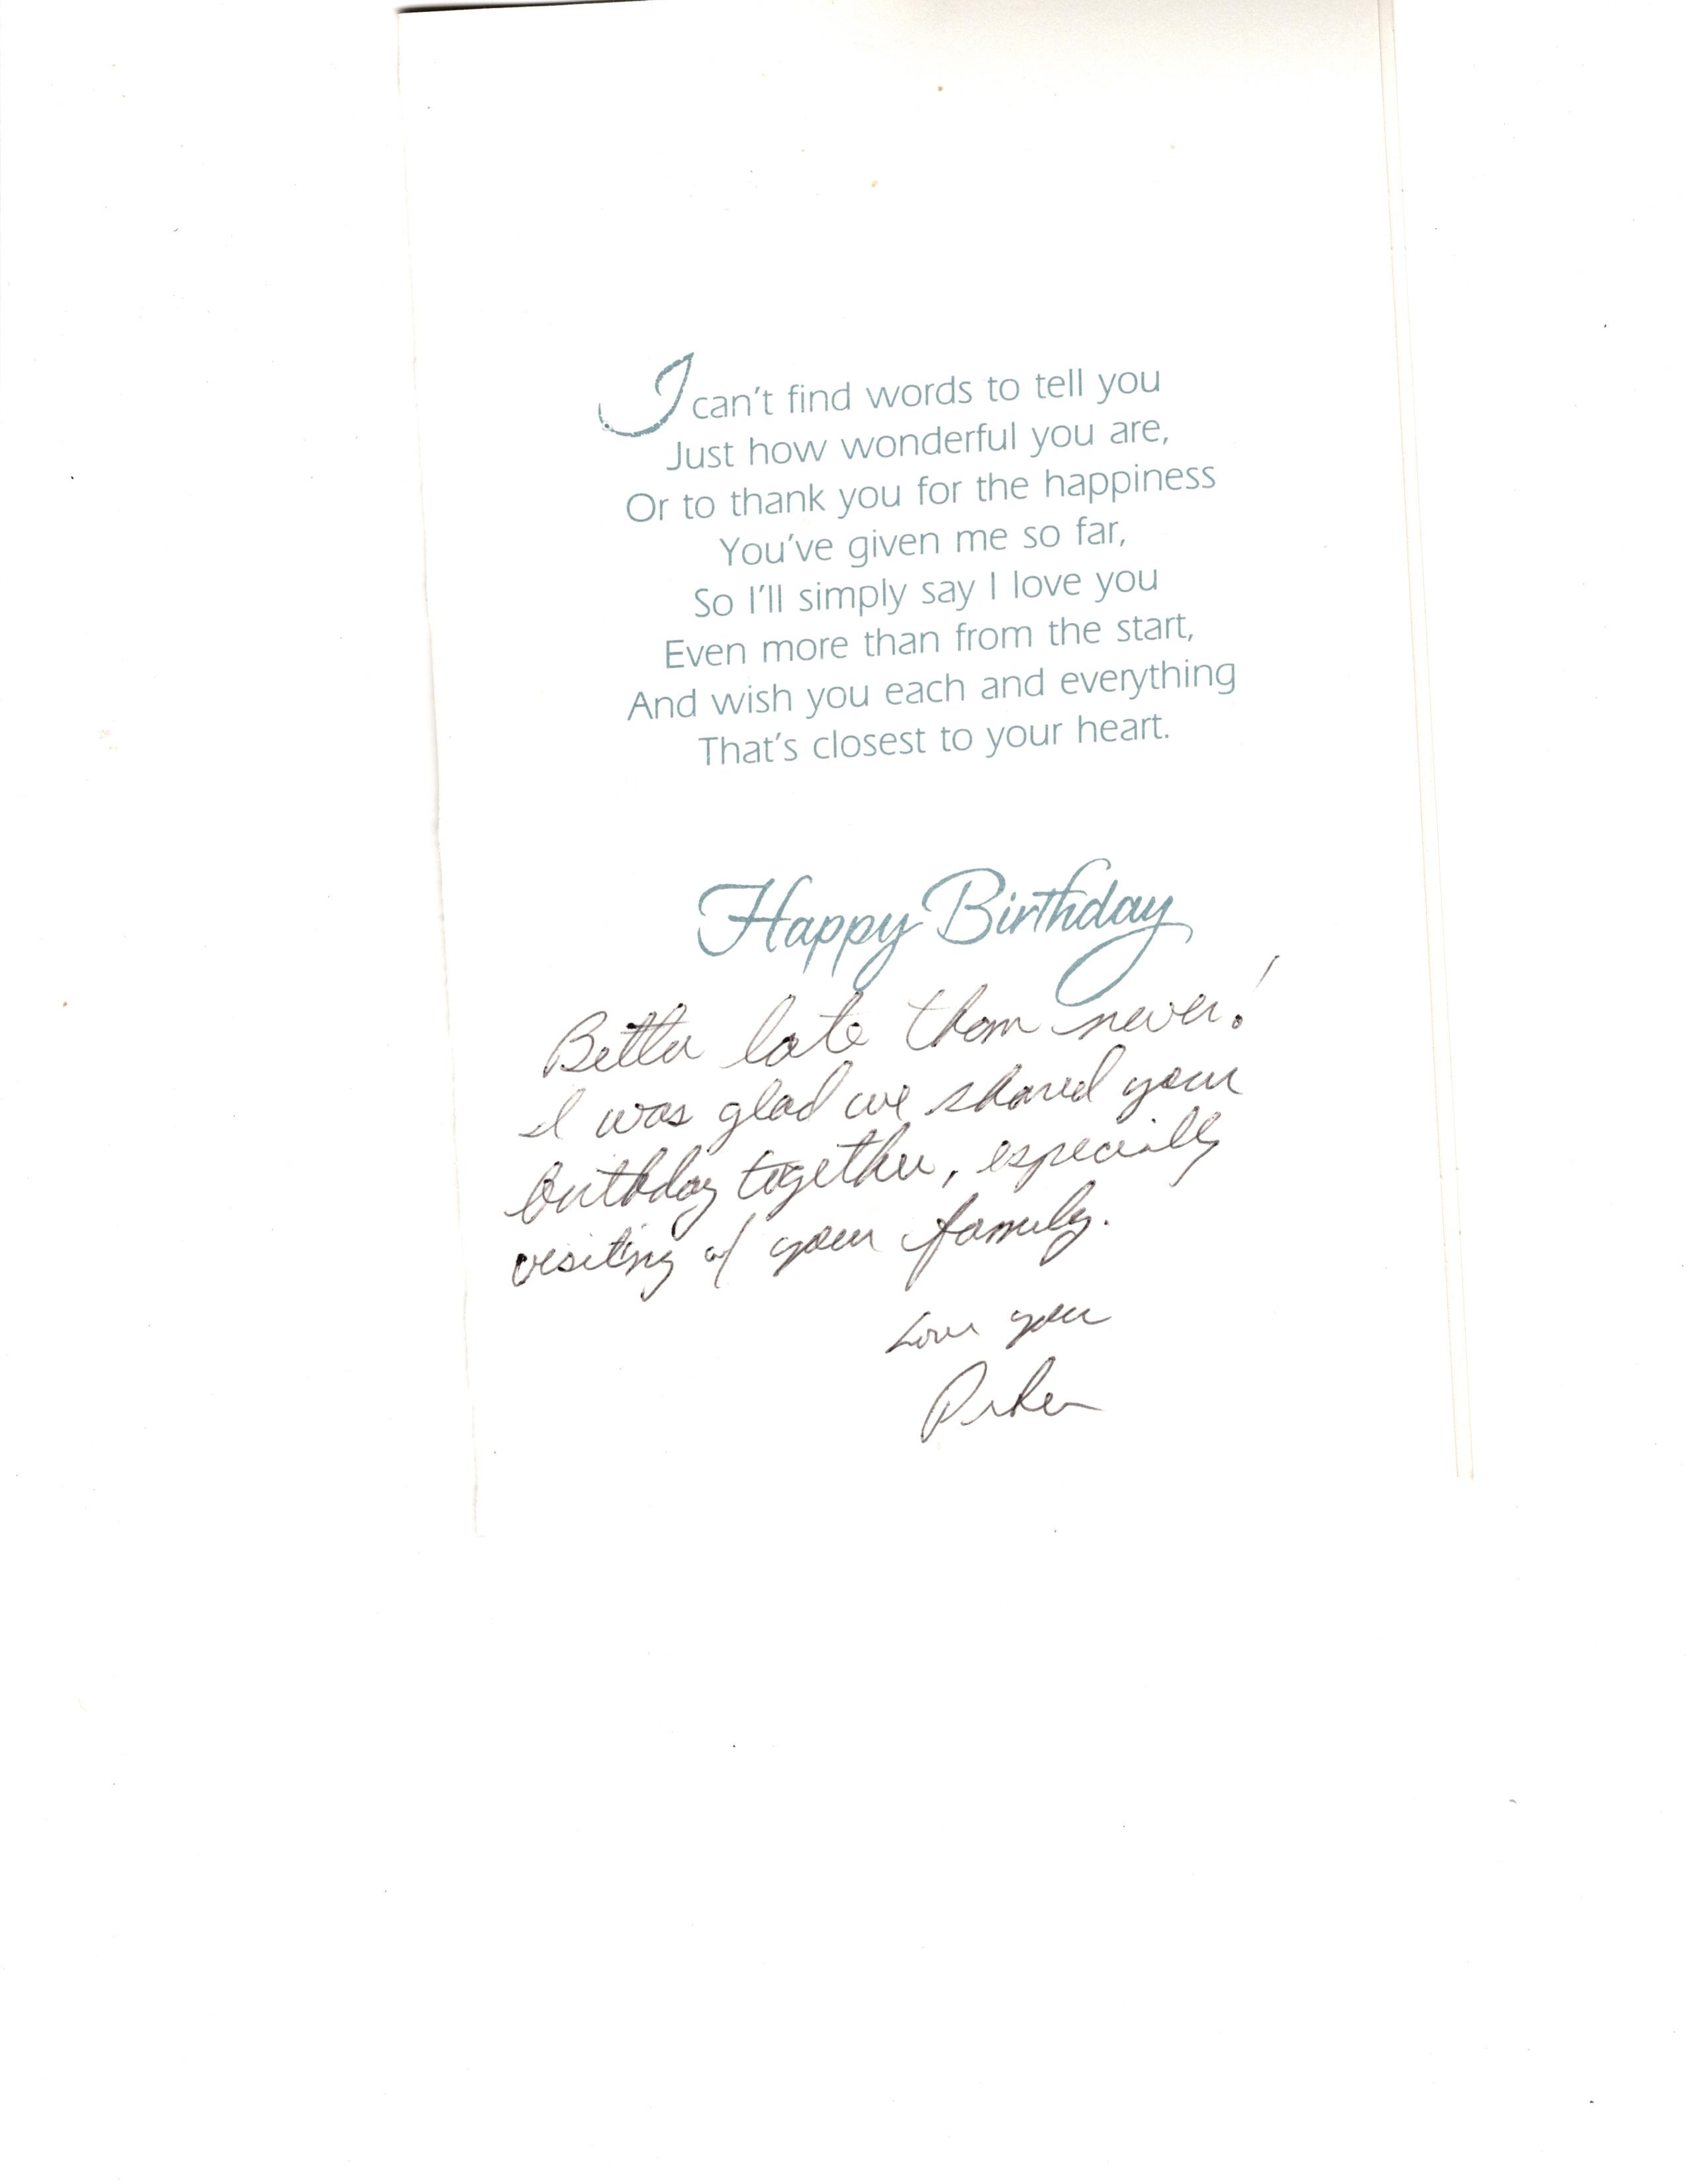 I can't find words to tell you
Just how wonderful you are,
Or to thank you for the happiness
You've given me so far,
So I'll simply say I love you
Even more than from the start,
And wish you each and everything
That's closest to your heart.
Happy Birthday
Better late than never!
I was glad we shared your
birthday together, especially
visiting w/ your family.
Love you